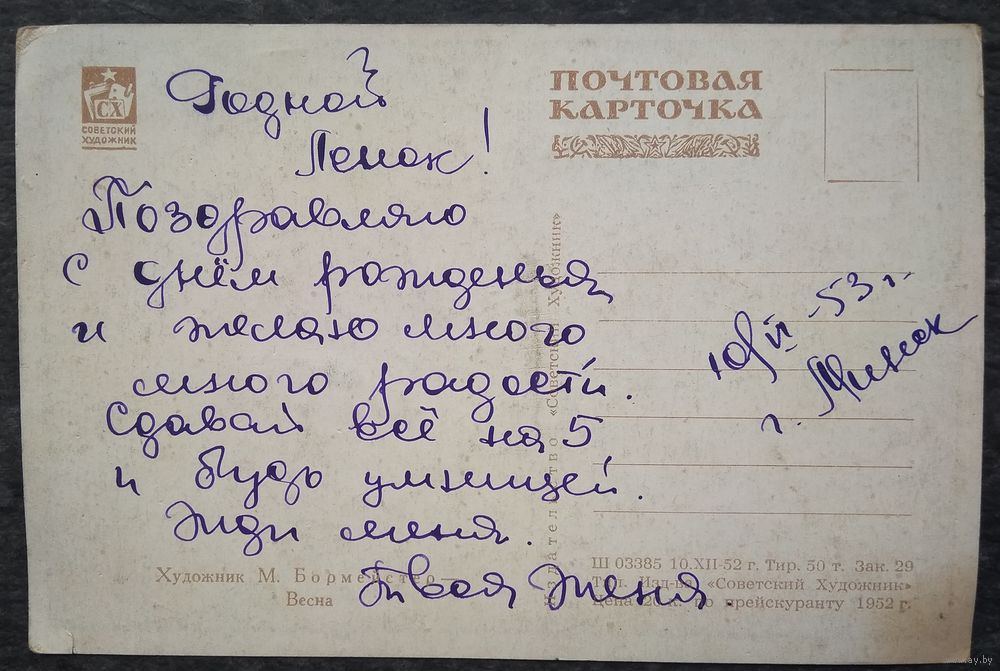 СХ
СОВЕТСКИЙ
ХУДОЖНИК
ПОЧТОВАЯ
КАРТОЧКА
Родной
Ленок!
Поздравляю
с днём рожденья
и желаю много
много радости.
Сдавай всё на 5
и будь умницей.
Жди меня.
Твоя Женя
10/VI -53 г.
г. Минск
Издательство «Советский Художник»
Художник М. Бормейстер—
Весна
Ш 03385 10.XII-52 г. Тир. 50 т. Зак. 29
Тип. Изд-ва «Советский Художник»
Цена 20 к. по прейскуранту 1952 г.